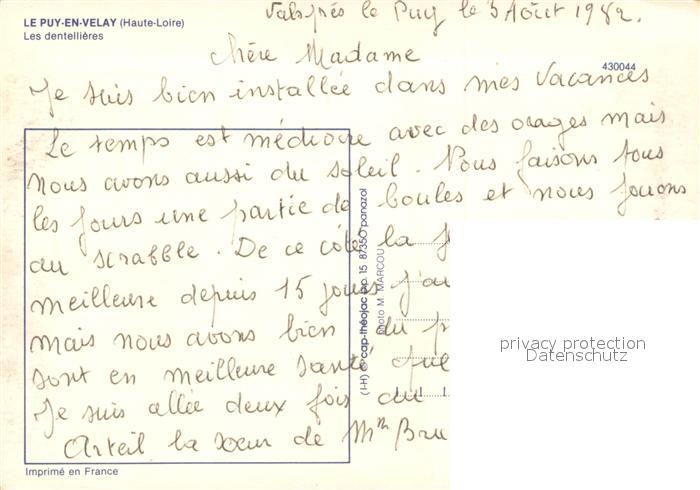 LE PUY-EN-VELAY (Haute-Loire)
Les dentellières
Vals près le Puy le 3 Août 1982.
430044
Chère Madame
Je suis bien installée dans mes vacances
Le temps est médiocre avec des orages mais
nous avons aussi du soleil. Nous faisons tous
les jours une partie de boules et nous jouons
au scrabble. De ce côté la
meilleure depuis 15 jours j'au
mais nous avons bien du p
sont en meilleure santé que
Je suis allée deux fois au
Arteil la sœur de Mm Bru
(I-H) cap-théojac b.p. 15 87350 panazol
Photo M. MARCOU
privacy protection
Datenschutz
Imprimé en France